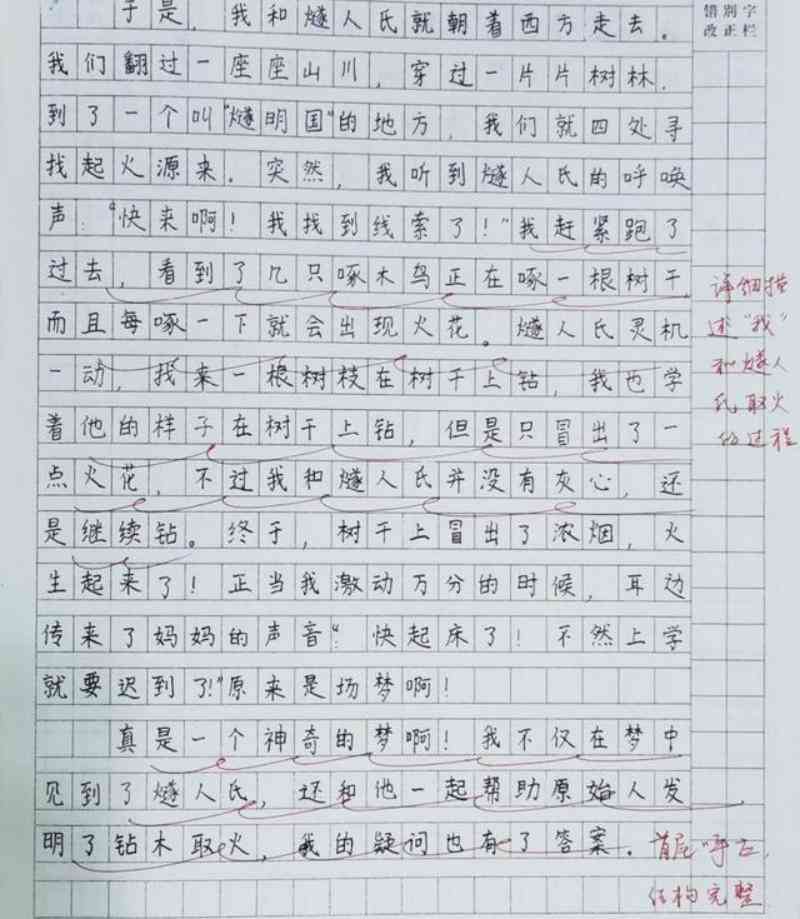 于是，我和燧人氏就朝着西方走去。
我们翻过一座座山川，穿过一片片树林.
到了一个叫“燧明国”的地方，我们就四处寻
找起火源来．突然，我听到燧人氏的呼唤
声：“快来啊！我找到线索了！”我赶紧跑了
过去，看到了几只啄木鸟正在啄一根树干
而且每啄一下就会出现火花。燧人氏灵机
一动，找来一根树枝在树干上钻，我也学
着他的样子在树干上钻，但是只冒出了一
点火花，不过我和燧人氏并没有灰心，还
是继续钻。终于，树干上冒出了浓烟，火
生起来了！正当我激动万分的时候，耳边
传来了妈妈的声音“：快起床了！不然上学
就要迟到了！”原来是场梦啊！
真是一个神奇的梦啊！我不仅在梦中
见到了燧人氏，还和他一起帮助原始人发
明了钻木取火，我的疑问也有了答案．
错别字
改正栏
详细描
述“我”
和燧人
氏取火
的过程
首尾呼应，
结构完整